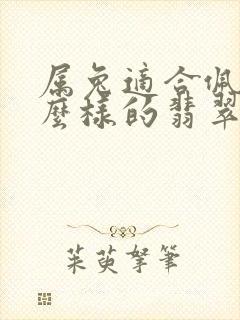 属兔適合佩
麼樣的翡翠
茱萸拏筆